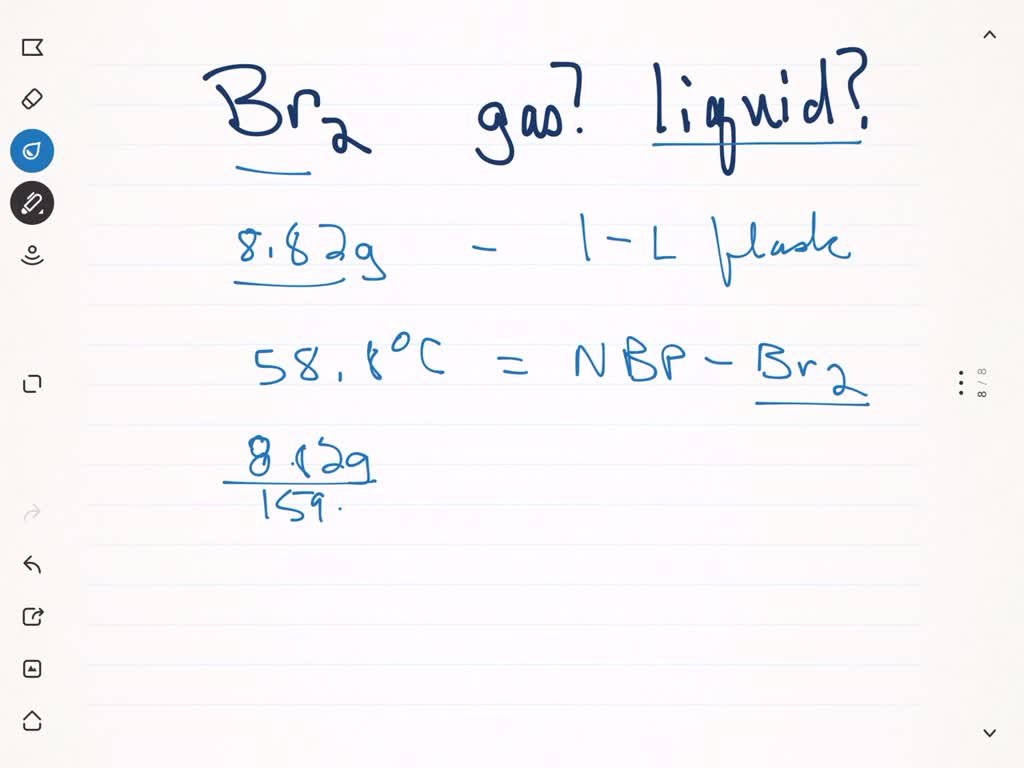 Br2 gas? liquid?
8.82g - 1-L flask
58.8°C = NBP - Br2
8.82g
159.
8/8